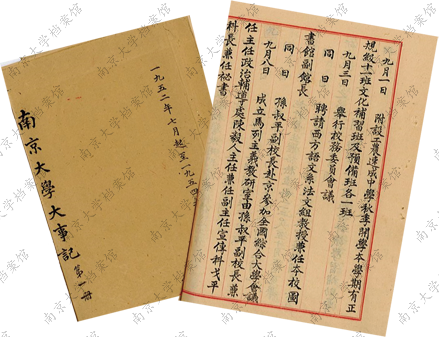 一九五二年七月起至一九五四
南京大學大事記 第一册
九月一日 附設工農速成中學秋季開學本學期有正
規級十二班文化補習班及預備班各一班
九月三日 舉行校務委員會議
同日 聘請西方語文系法文組教授兼任本校圖
書館副館長
同日 孫叔平副校長赴京參加全國綜合大學會議
九月八日 成立馬列主義教研室由孫叔平副校長兼
任主任政治輔導處陳毅人主任兼任副主任宣傳科戈平
科長兼任秘書
南京大学档案馆